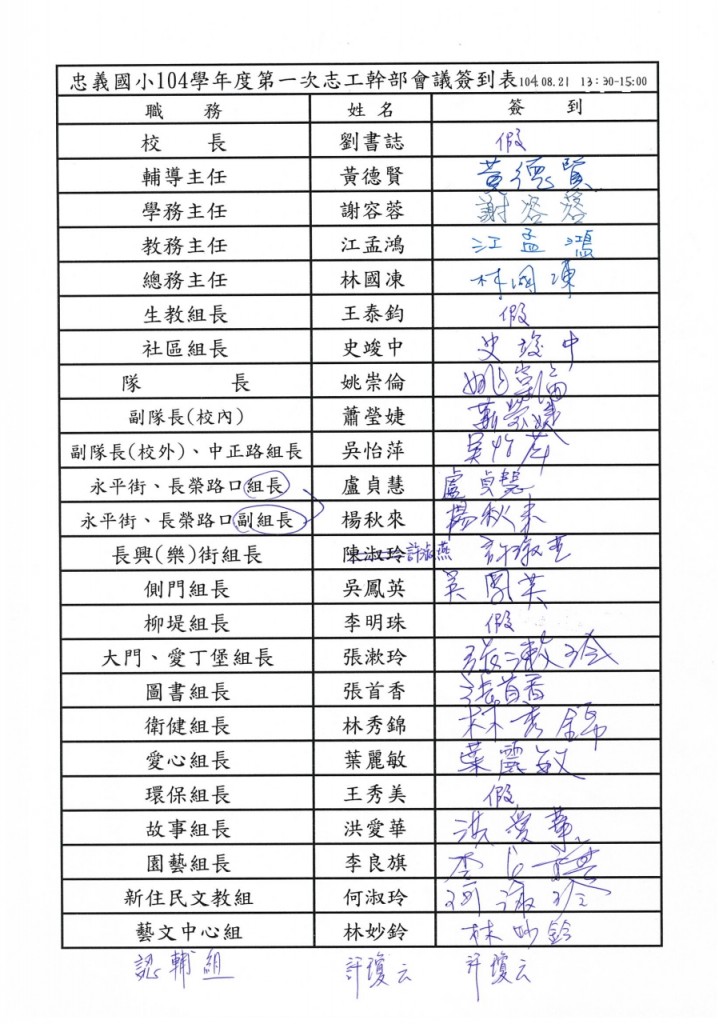 忠義國小104學年度第一次志工幹部會議簽到表 104.08.21 13:30-15:00
職 務 姓 名 簽 到
校 長 劉書誌 假
輔導主任 黃德賢 黃德賢
學務主任 謝容蓉 謝容蓉
教務主任 江孟鴻 江孟鴻
總務主任 林國凍 林國凍
生教組長 王泰鈞 假
社區組長 史竣中 史竣中
隊 長 姚崇倫 姚崇倫
副隊長(校內) 蕭瑩婕 蕭瑩婕
副隊長(校外)、中正路組長 吳怡萍 吳怡萍
永平街、長榮路口組長 盧貞慧 盧貞慧
永平街、長榮路口副組長 楊秋來 楊秋來
長興(樂)街組長 陳淑玲 許淑燕 許淑燕
側門組長 吳鳳英 吳鳳英
柳堤組長 李明珠 假
大門、愛丁堡組長 張漱玲 張漱玲
圖書組長 張首香 張首香
衛健組長 林秀錦 林秀錦
愛心組長 葉麗敏 葉麗敏
環保組長 王秀美 假
故事組長 洪愛華 洪愛華
園藝組長 李良旗 李良旗
新住民文教組 何淑玲 何淑玲
藝文中心組 林妙鈴 林妙鈴
認輔組 許瓊云 許瓊云